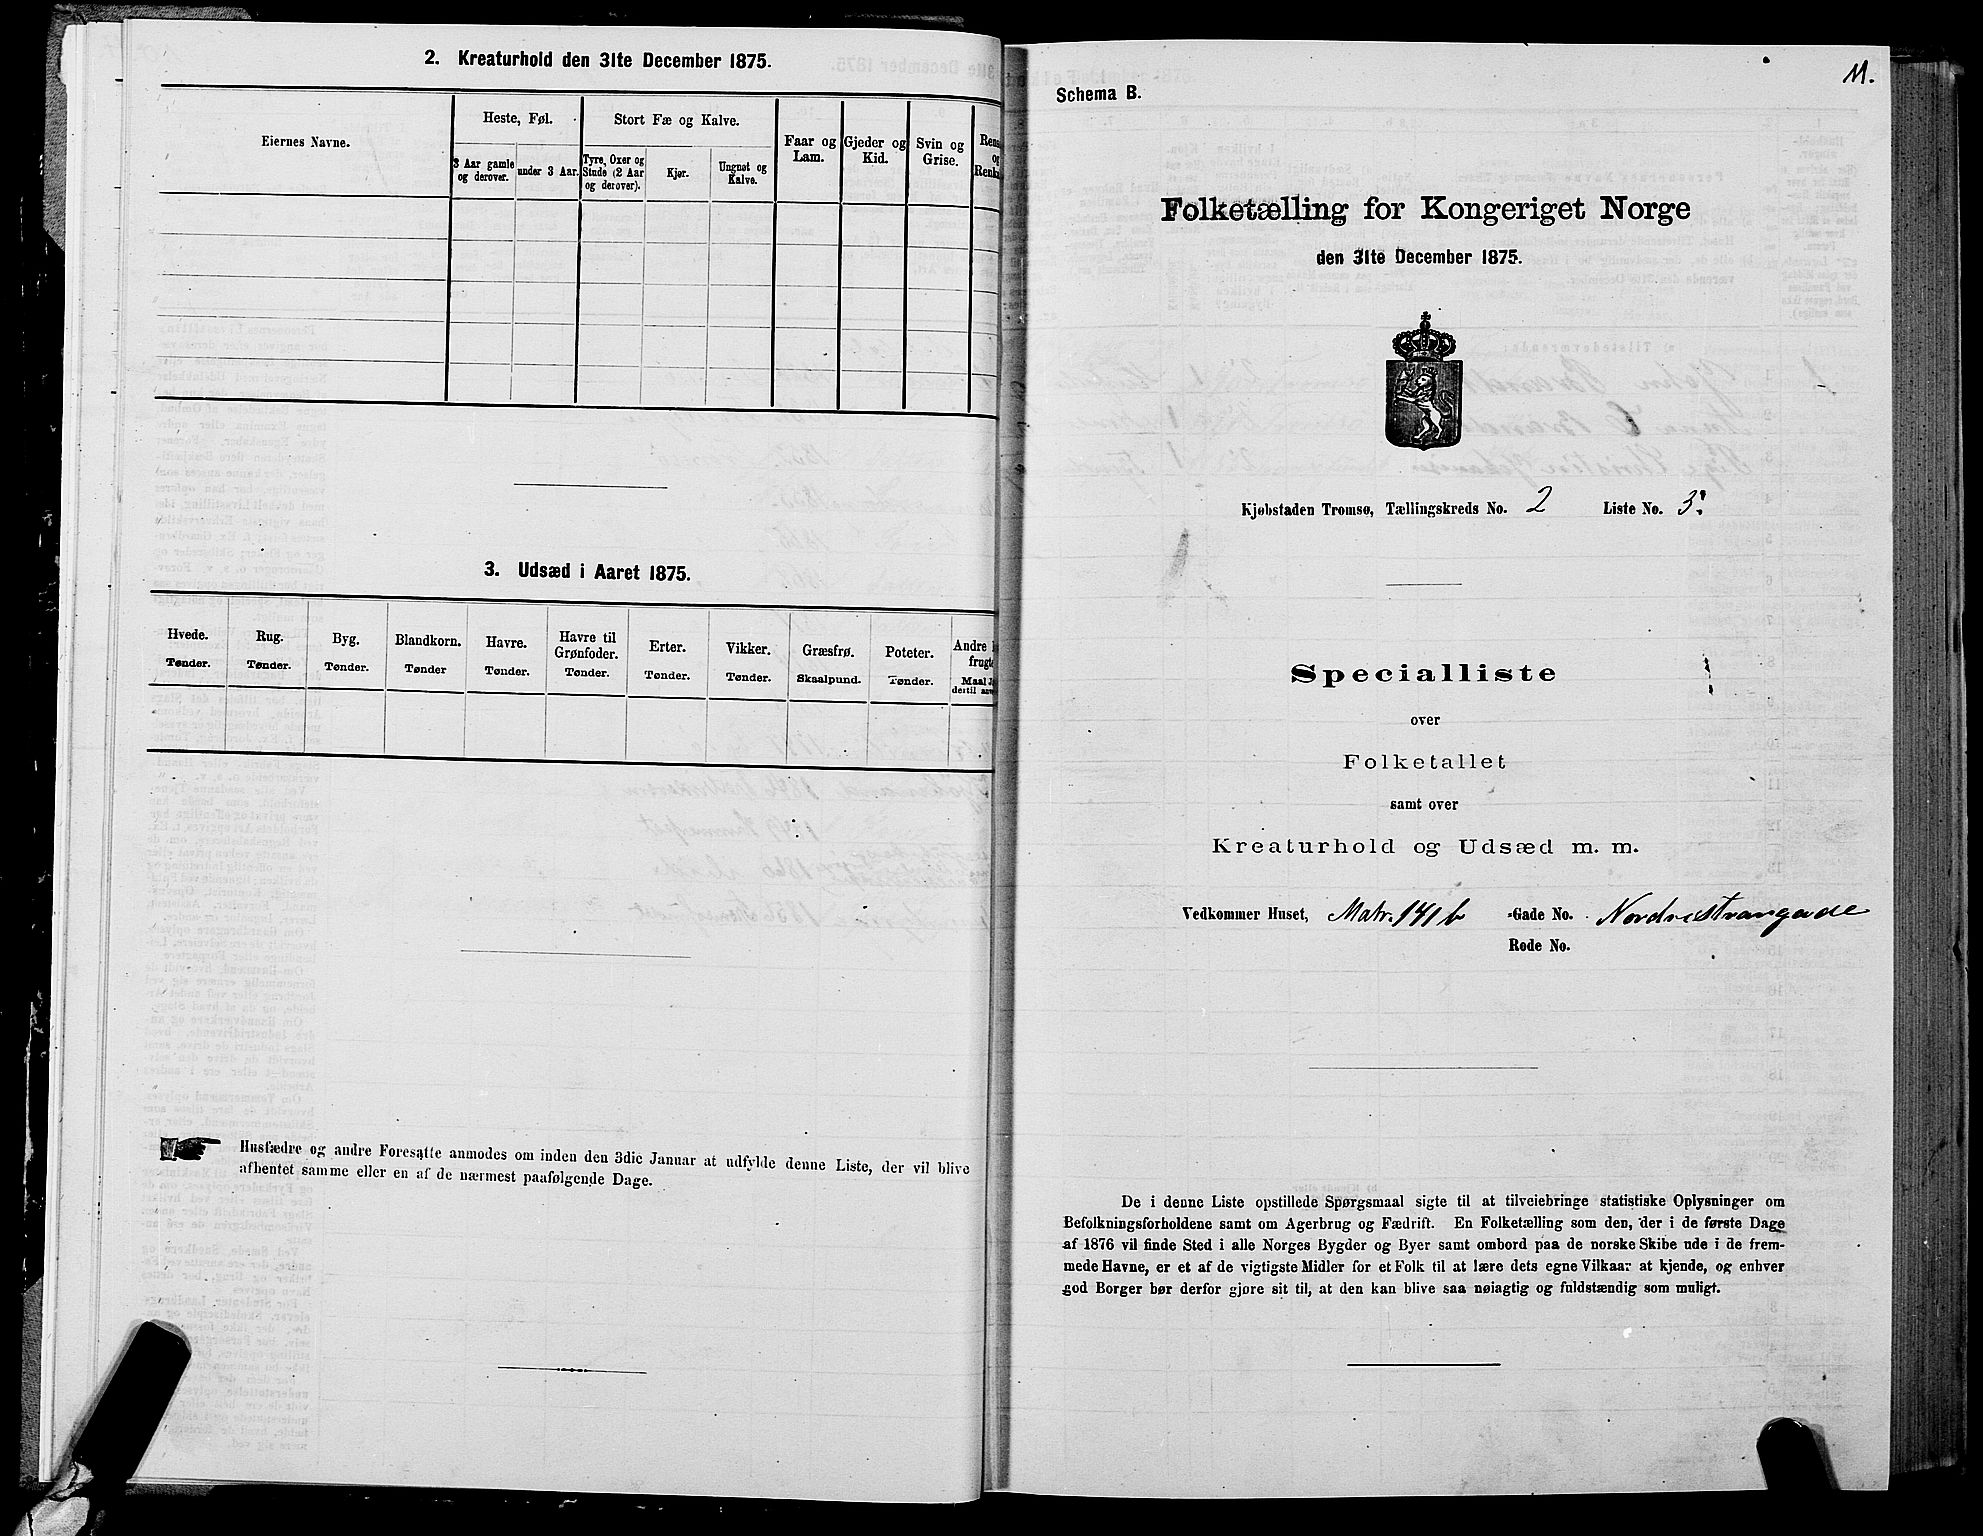 2. Kreaturhold den 31te December 1875.
Eiernes Navne.
Heste, Føl.
Stort Fæ og Kalve.
Faar og
Lam.
Gjeder og
Kid.
Svin og
Grise.
Rens
og
Renka
3 Aar gamle
og derover.
under 3 Aar.
Tyre, Oxer og
Stude (2 Aar
og derover).
Kjør.
Ungnøt og
Kalve.
3. Udsæd i Aaret 1875.
Hvede.
Tønder.
Rug.
Tønder.
Byg.
Tønder.
Blandkorn.
Tønder
Havre.
Tønder.
Havre til
Grønfoder.
Tønder.
Erter.
Tønder.
Vikker.
Tønder.
Græsfrø.
Skaalpund.
Poteter.
Tønder.
Andre
frugte
Maal
dertil
Husfædre og andre Foresatte anmodes om inden den 3die Januar at udfylde denne Liste, der vil blive
afhentet samme eller en af de nærmest paafølgende Dage.
11.
Schema B.
Folketælling for Kongeriget Norge
den 31te December 1875.
Kjøbstaden Tromsø, Tællingskreds No. 2 Liste No. 3.
Specialliste
over
Folketallet
samt over
Kreaturhold og Udsæd m. m.
Vedkommer Huset, Matr. 141b -Gade No. Nordrestrangade
Rode No.
De i denne Liste opstillede Spørgsmaal sigte til at tilveiebringe statistiske Oplysninger om
Befolkningsforholdene samt om Agerbrug og Fædrift. En Folketælling som den, der i de første Dage
af 1876 vil finde Sted i alle Norges Bygder og Byer samt ombord paa de norske Skibe ude i de frem-
mede Havne, er et af de vigtigste Midler for et Folk til at lære dets egne Vilkaar at kjende, og enhver
god Borger bør derfor gjøre sit til, at den kan blive saa nøiagtig og fuldstændig som muligt.